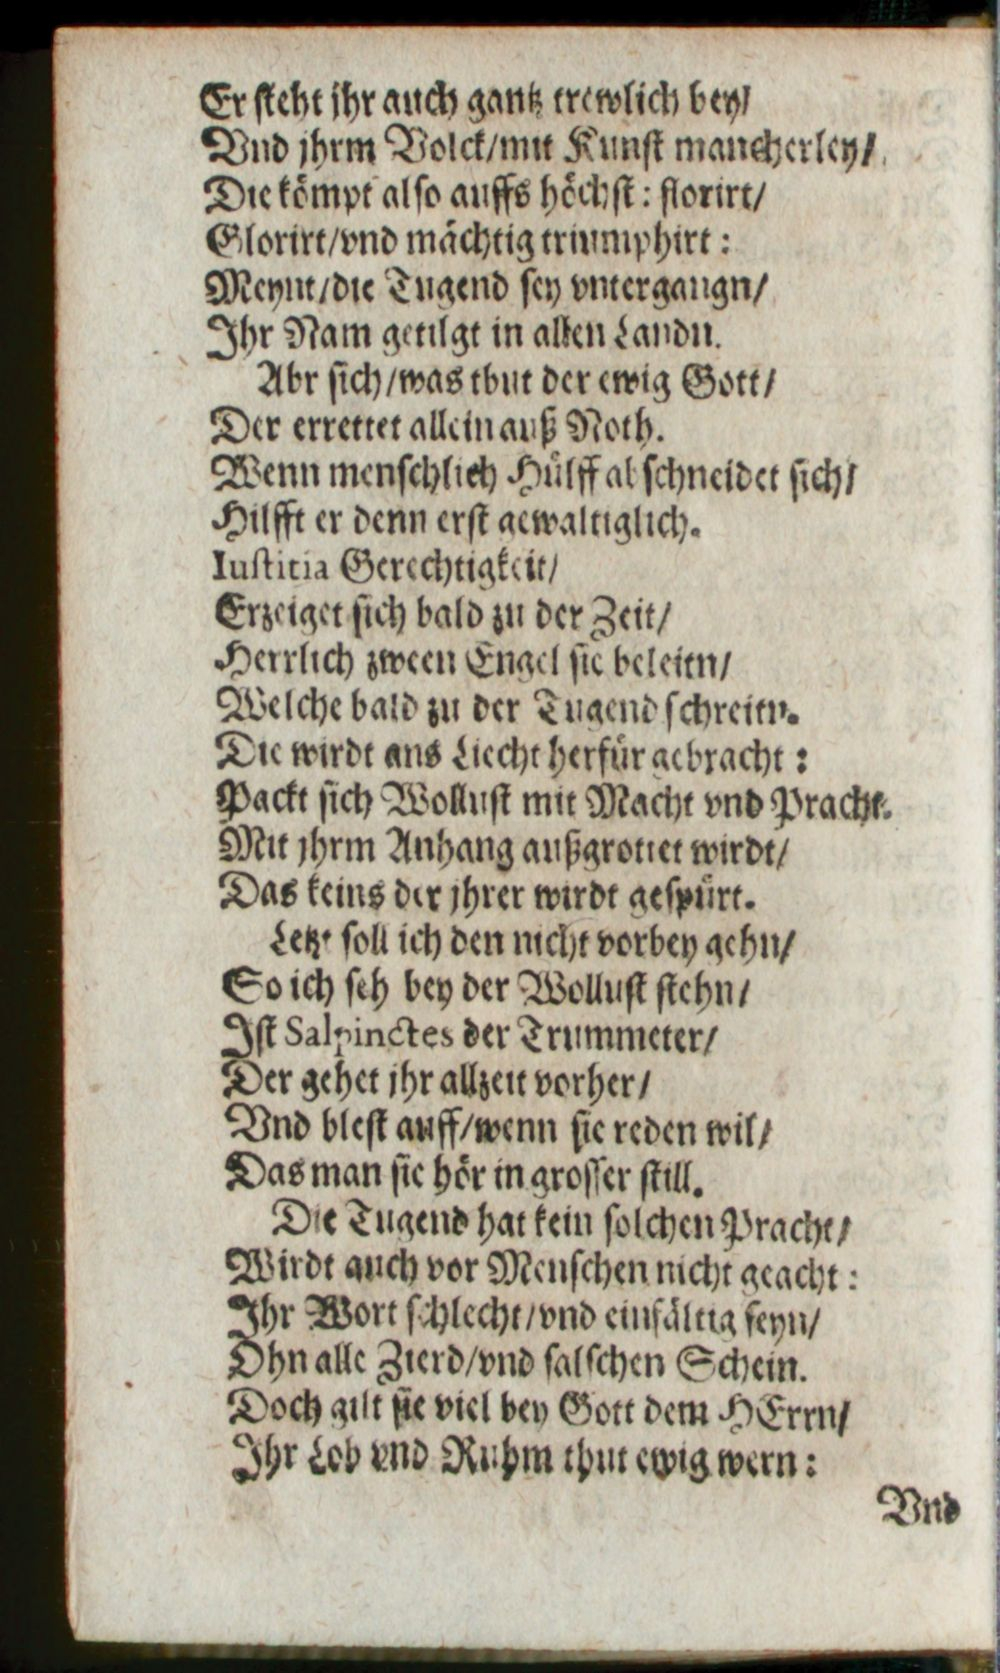 Er steht jhr auch gantz trewlich bey/
Vnd jhrm Volck/mit Kunst mancherley/
Die kömpt also auffs höchst: florirt/
Glorirt/vnd mächtig triumphirt:
Meynt/die Tugend sey vntergangn/
Ihr Nam getilgt in allen Landn.
Abr sich/was thut der ewig Gott/
Der errettet allein auß Noth.
Wenn menschlich Hülff abschneidet sich/
Hilfft er denn erst gewaltiglich.
Iustitia Gerechtigkeit/
Erzeiget sich bald zu der Zeit/
Herrlich zween Engel sie beleitn/
Welche bald zu der Tugend schreitn.
Die wirdt ans Liecht herfür gebracht:
Packt sich Wollust mit Macht vnd Pracht.
Mit jhrm Anhang außgrottet wirdt/
Das keins der jhrer wirdt gespürt.
Letzt soll ich den nicht vorbey gehn/
So ich seh bey der Wollust stehn/
Ist Salpinctes der Trummeter/
Der gehet jhr allzeit vorher/
Vnd blest auff/wenn sie reden wil/
Das man sie hör in grosser still.
Die Tugend hat kein solchen Pracht/
Wirdt auch vor Menschen nicht geacht:
Ihr Wort schlecht/vnd einfältig seyn/
Ohn alle Zierd/vnd falschen Schein.
Doch gilt sie viel bey Gott dem HErrn/
Ihr Lob vnd Ruhm thut ewig wern:
Vnd